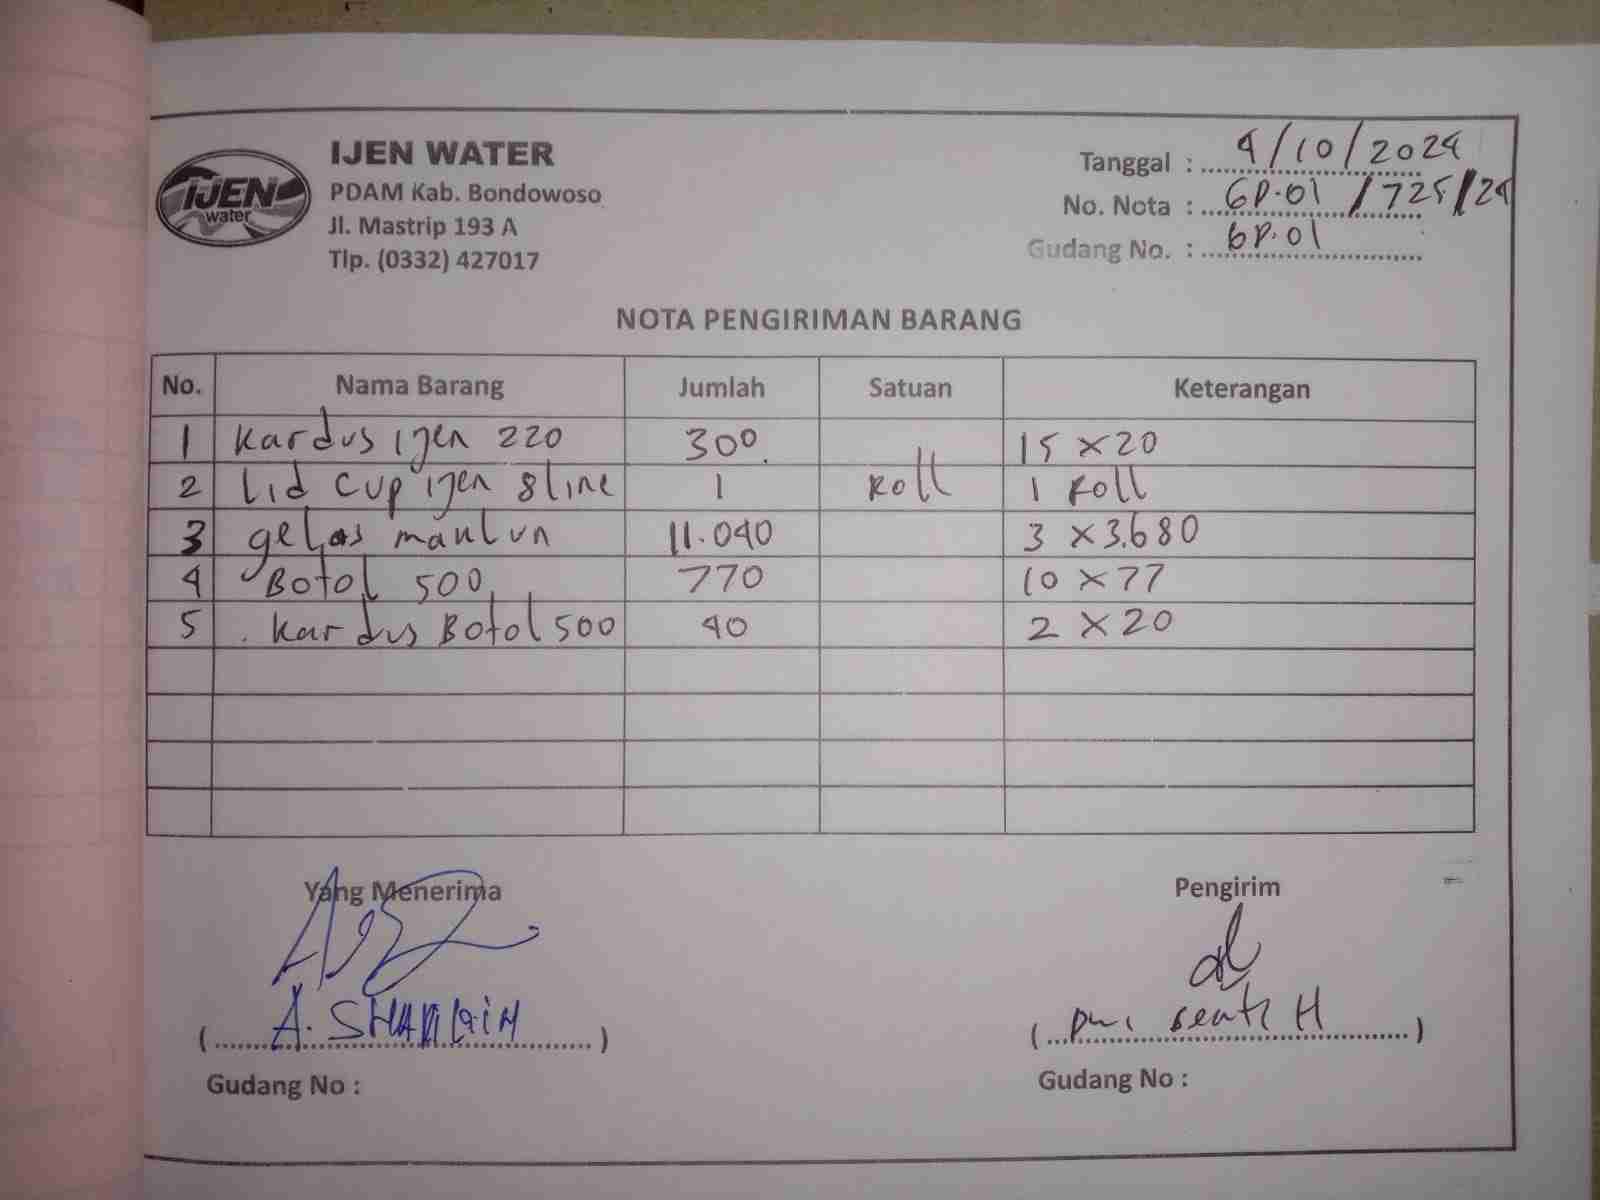 IJEN
water
IJEN WATER
PDAM Kab. Bondowoso
Jl. Mastrip 193 A
Tlp. (0332) 427017
Tanggal : 4/10/2024
No. Nota : GD.01 /725/24
Gudang No. : GD.01
NOTA PENGIRIMAN BARANG
No. Nama Barang Jumlah Satuan Keterangan
1 Kardus ijen 220 300 15 x 20
2 Lid cup ijen 8 line 1 Roll 1 Roll
3 gelas maulun 11.040 3 x 3.680
4 Botol 500 770 10 x 77
5 Kardus Botol 500 40 2 x 20
Yang Menerima Pengirim
( A. ) ( H )
Gudang No : Gudang No :